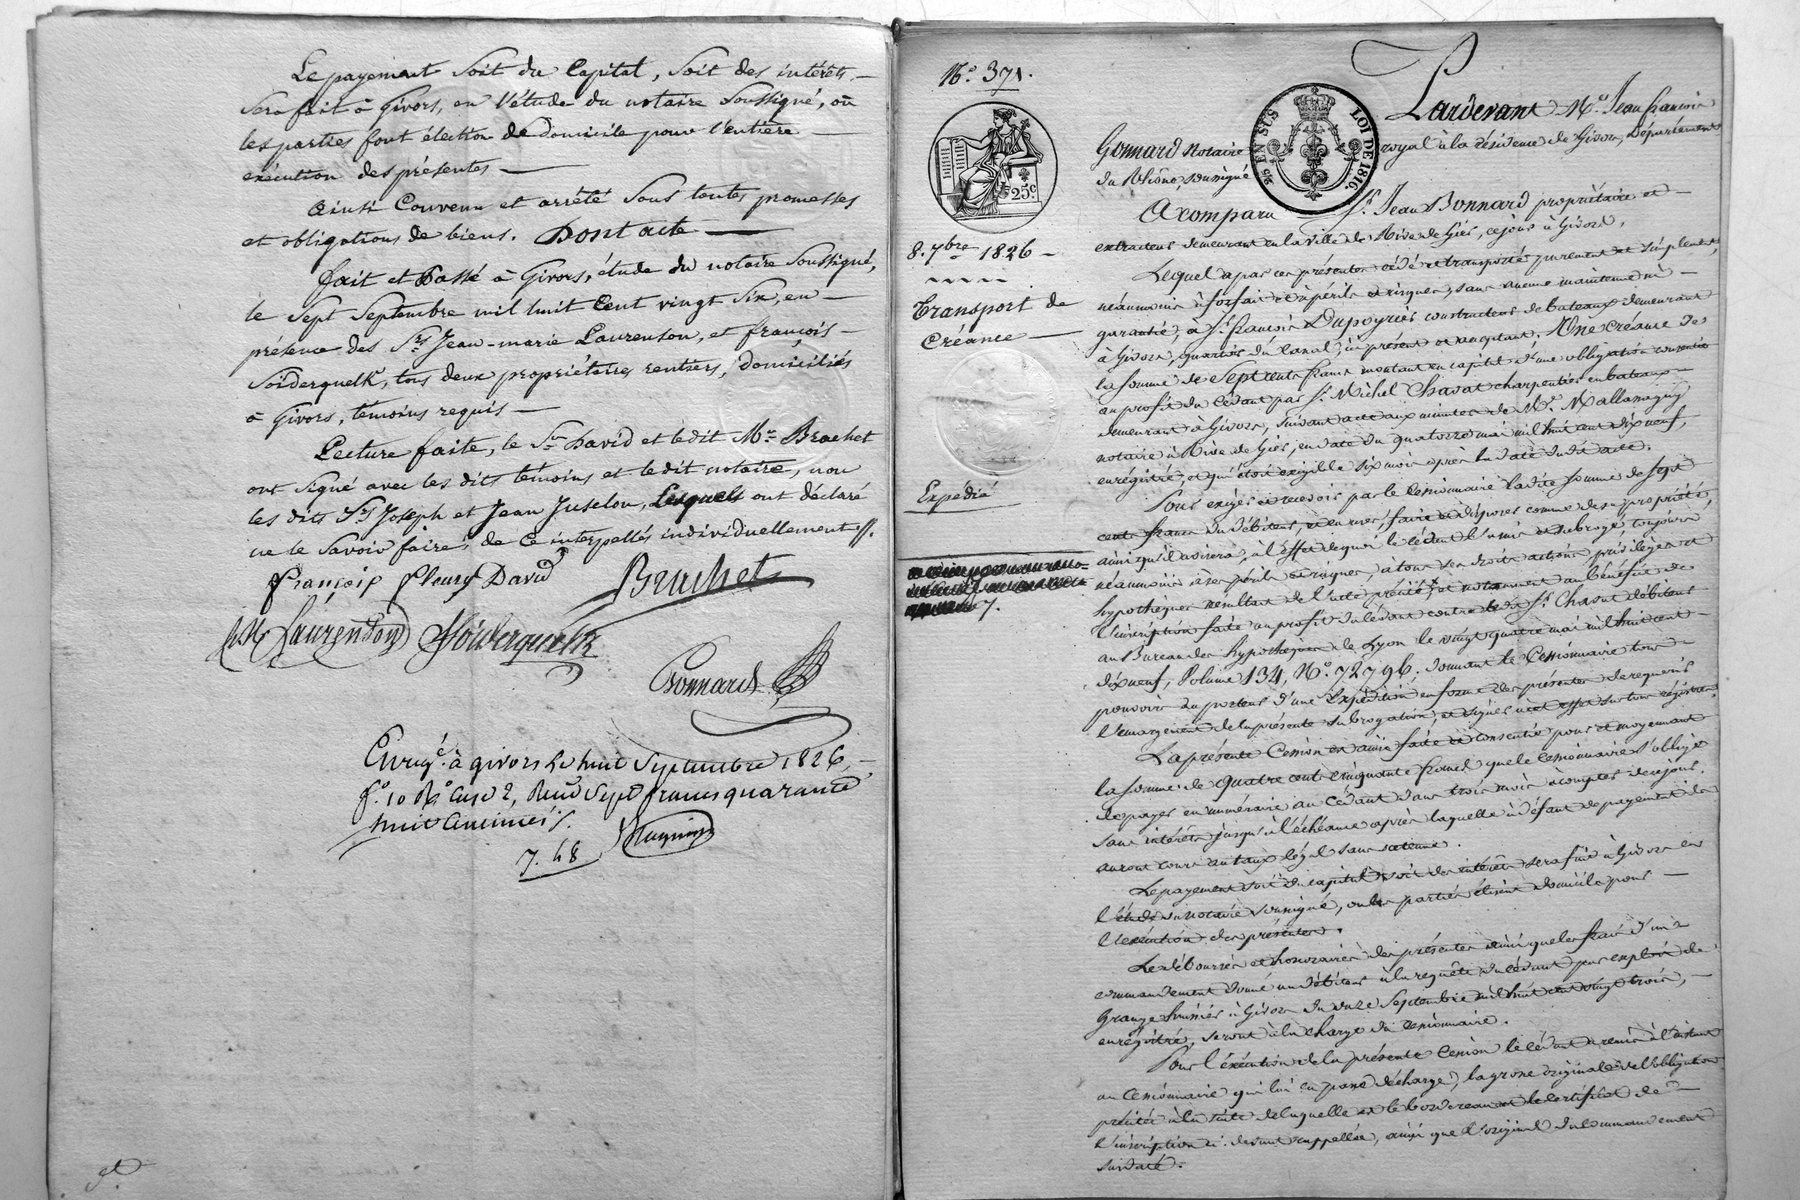 Le payement soit du Capital, soit des intérêts, —
sera fait à Givors, en l'étude du notaire soussigné, où
les parties font élection de domicile pour l'entière —
exécution des présentes —
Ainsi Convenu et arrêté sous toutes promesses
et obligations de biens. Dont acte —
fait et Passé à Givors, étude du notaire soussigné,
le sept septembre mil huit cent vingt six, en —
présence des Srs Jean-marie Laurenson, et françois —
Soiderquelk, tous deux propriétaires rentiers, domiciliés
à Givors, témoins requis —
Lecture faite, le Sr David et ledit Me Brachet
ont signé avec les dits témoins et le dit notaire, non
les dits Srs Joseph et Jean Juselon, Lesquels ont déclaré
ne le savoir faire, de ce interpellés individuellement //.
françois fleury David Brachet
JM Laurenson Soiderquelk
Gonnard
Enregé. à givors le huit Septembre 1826, —
fo. 10 Ro Case 2, Reçu Sept francs quarante
huit Centimes.
7. 48
No. 371.
25c.
8. 7bre 1826 —
Transport de
Créance —
Expédié
7.
EN SUS LOI DE 1816.
Pardevant Me. Jean françois
Gonnard Notaire royal à la résidence de Givors, Département
du Rhône, soussigné
A comparu Sr. Jean Bonnard propriétaire et —
extracteur demeurant en la ville de Rive de Gier, ce jour à Givors,
Lequel a par ces présentes cédé et transporté purement et simplement,
néanmoins à forfait et à périls et risques, sans aucune maintenue ni —
garantie, à Sr. françois Dupeyrier constructeur de bateaux demeurant
à Givors, quartier du Canal, ici présent et acceptant, Une créance de
la somme de sept cents francs montant en capital d'une obligation consentie
au profit du cédant par Sr. Michel Chavat charpentier en bateaux —
demeurant à Givors, suivant acte aux minutes de Me. Mallamagny
notaire à Rive de Gier, en date du quatorze mai mil huit cent dix neuf,
enregistré, et qui étoit exigible six mois après la date du dit acte.
Pour exiger et recevoir par le Cessionnaire ladite somme de sept
cents francs du débiteur, en user, faire et disposer comme de sa propriété,
ainsi qu'il avisera, à l'effet de quoi le cédant le met et subroge toujours
néanmoins à ses périls et risques, à tous ses droits actions privilèges et
hypothèques résultant de l'acte précité, et notamment au bénéfice de
l'inscription faite au profit du cédant contre le dit Sr. Chavat débiteur
au Bureau des hypothèques de Lyon le vingt quatre mai mil huit cent —
dix neuf, Volume 134, No. 72796; donnant le Cessionnaire tous —
pouvoirs au porteur d'une Expédition en forme des présentes de requérir
l'émargement de la présente subrogation, et signer à cet effet sur tous régistres.
La présente Cession est ainsi faite et consentie pour et moyennant
la somme de quatre cents cinquante francs que le cessionnaire s'oblige
de payer en numéraire au Cédant dans trois mois à compter de ce jour,
sans intérêts jusqu'à l'échéance après laquelle à défaut de payement ils
auront cours au taux légal sans retenue.
Le payement soit du capital, soit des intérêts sera fait à Givors en
l'étude du notaire soussigné, où les parties élisent domicile pour —
l'exécution des présentes.
Les déboursés et honoraires des présentes ainsi que les frais d'un
commandement donné au débiteur à la requête du cédant par exploit de
Grange huissier à Givors du onze Septembre mil huit cent vingt trois, —
enregistré, seront à la charge du cessionnaire.
Pour l'exécution de la présente Cession le cédant a remis à l'instant
au Cessionnaire qui lui en passe décharge, la grosse originale de l'obligation
précitée à la suite de laquelle est le bordereau et le certificat de —
l'inscription ci-devant rappellée, ainsi que l'original du commandement
susdaté.